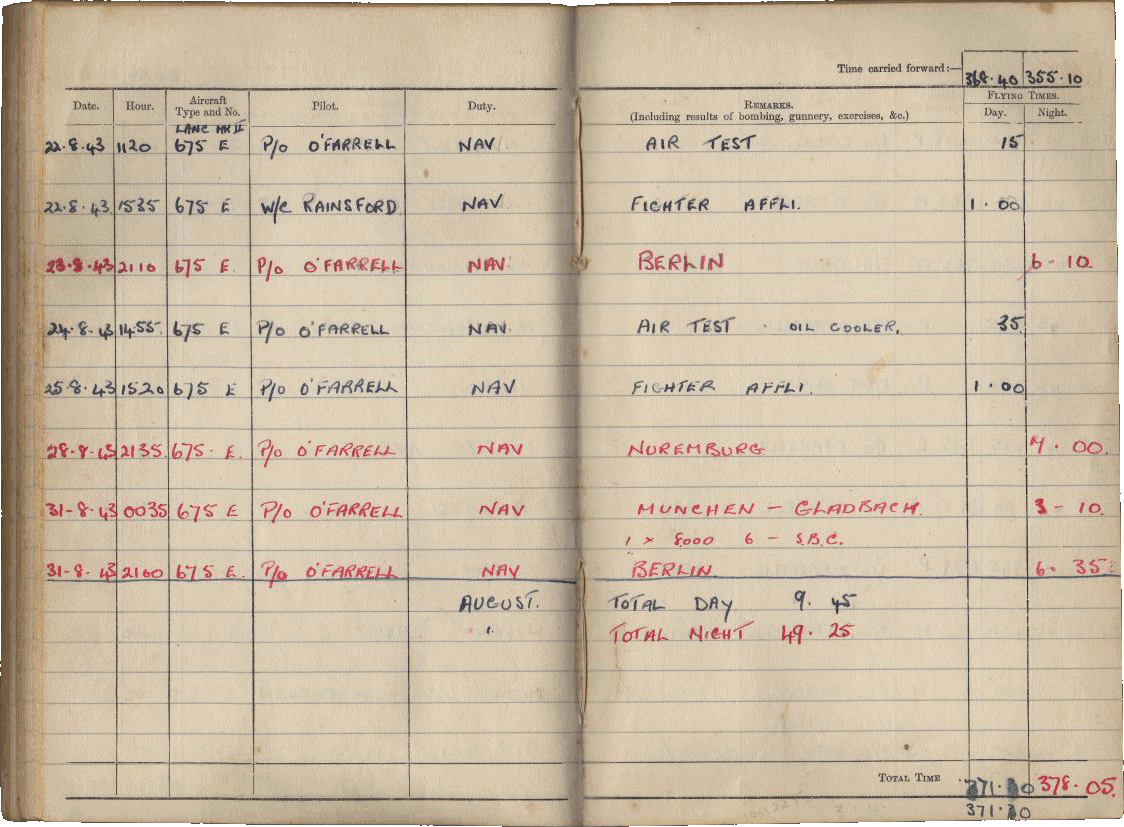 Time carried forward:— 368·40 355·10
Date. Hour. Aircraft Type and No. Pilot. Duty. REMARKS. (Including results of bombing, gunnery, exercises, &c.) FLYING TIMES. Day. Night.
LANC MK II
22·8·43 1120 675 E P/O O'FARRELL NAV AIR TEST 15
22·8·43 1535 675 E W/C RAINSFORD NAV FIGHTER AFFLI. 1·00
23·8·43 2110 675 E. P/O O'FARRELL NAV BERLIN 6-10.
24·8·43 1455. 675 E P/O O'FARRELL NAV. AIR TEST · OIL COOLER. 35.
25·8·43 1520 675 E P/O O'FARRELL NAV FIGHTER AFFLI. 1·00
28·8·43 2135. 675· E. P/O O'FARRELL NAV NUREMBURG 7·00.
31-8-43 0035 675 E P/O O'FARRELL NAV MUNCHEN - GLADBACH. 3-10.
1 x 8000 6 - S.B.C.
31-8-43 2100 675 E. P/O O'FARRELL NAV BERLIN. 6. 35
AUGUST. TOTAL DAY 9. 45
TOTAL NIGHT 49. 25
TOTAL TIME 371·30 378·05.
371·30